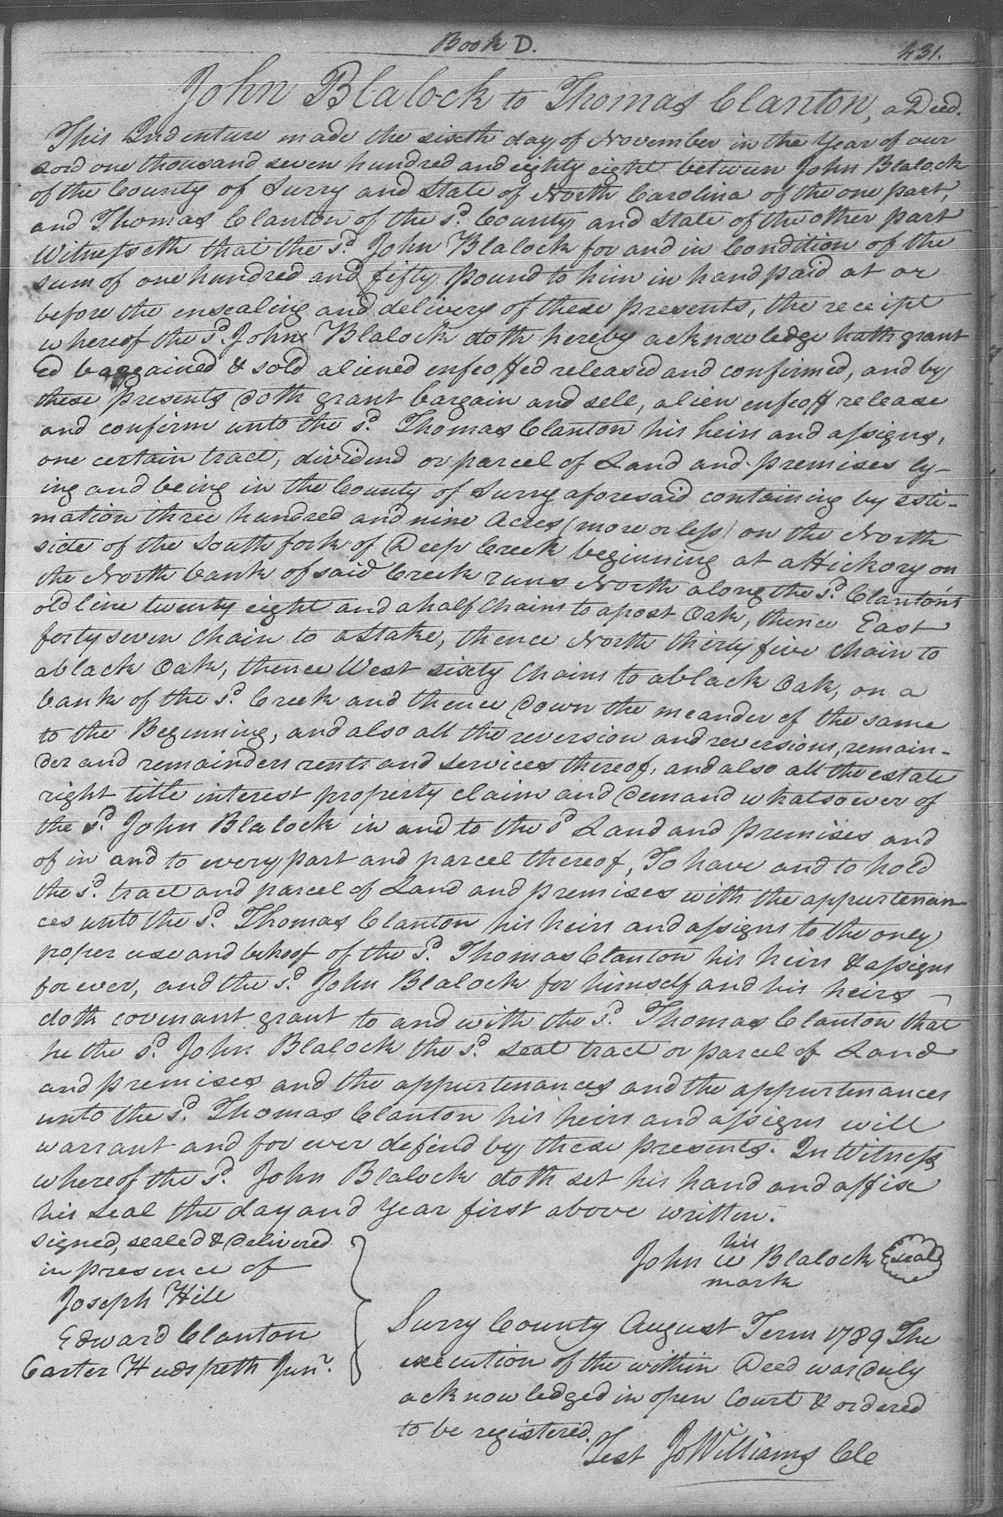 Book D.
431.
John Blalock to Thomas Clanton, a Deed.
This Indenture made the sixth day of November in the Year of our
Lord one thousand seven hundred and eighty eight between John Blalock
of the County of Surry and State of North Carolina of the one part,
and Thomas Clanton of the sd. County and State of the other part
Witnesseth that the sd. John Blalock for and in Condition of the
sum of one hundred and fifty pound to him in hand paid at or
before the ensealing and delivery of these presents, the receipt
whereof the sd. John Blalock doth hereby acknowledge hath grant
ed bargained & sold aliened enfeoffed released and confirmed, and by
these Presents doth grant bargain and sell, alien enfeoff release
and confirm unto the sd. Thomas Clanton his heirs and assigns,
one certain tract, dividend or parcel of Land and premises ly-
ing and being in the County of Surry aforesaid containing by esti-
mation three hundred and nine Acres (more or less) on the North
side of the South fork of Deep Creek beginning at a Hickory on
the North bank of said Creek runs North along the sd. Clanton's
old line twenty eight and a half Chains to a post Oak, thence East
forty seven Chain to a Stake, thence North thirty five Chain to
a black Oak, thence West sixty Chains to a black Oak, on a
bank of the sd. Creek and thence Down the meander of the same
to the Beginning, and also all the reversion and reversions, remain-
der and remainders rents and services thereof, and also all the estate
right title interest property claim and Demand whatsoever of
the sd. John Blalock in and to the sd Land and premises and
of in and to every part and parcel thereof, To have and to hold
the sd. tract and parcel of Land and premises with the appurtenan
ces unto the sd. Thomas Clanton his heirs and assigns to the only
proper use and behoof of the sd. Thomas Clanton his heirs & assigns
for ever, and the sd. John Blalock for himself and his heirs
doth covenant grant to and with the sd. Thomas Clanton that
he the sd. John Blalock the sd. seat tract or parcel of Land
and premises and the appurtenances and the appurtenances
unto the sd. Thomas Clanton his heirs and assigns will
warrant and for ever defend by these presents. In Witness
whereof the sd. John Blalock doth set his hand and affix
his seal the day and Year first above written.
signed, sealed & Delivered
in presence of
Joseph Hill
Edward Clanton
Carter Hudspeth Junr.
his
John Blalock seal
mark
Surry County August Term 1789 The
execution of the within Deed was duly
acknowledged in open Court & ordered
to be registered.
Test Jo Williams Clc